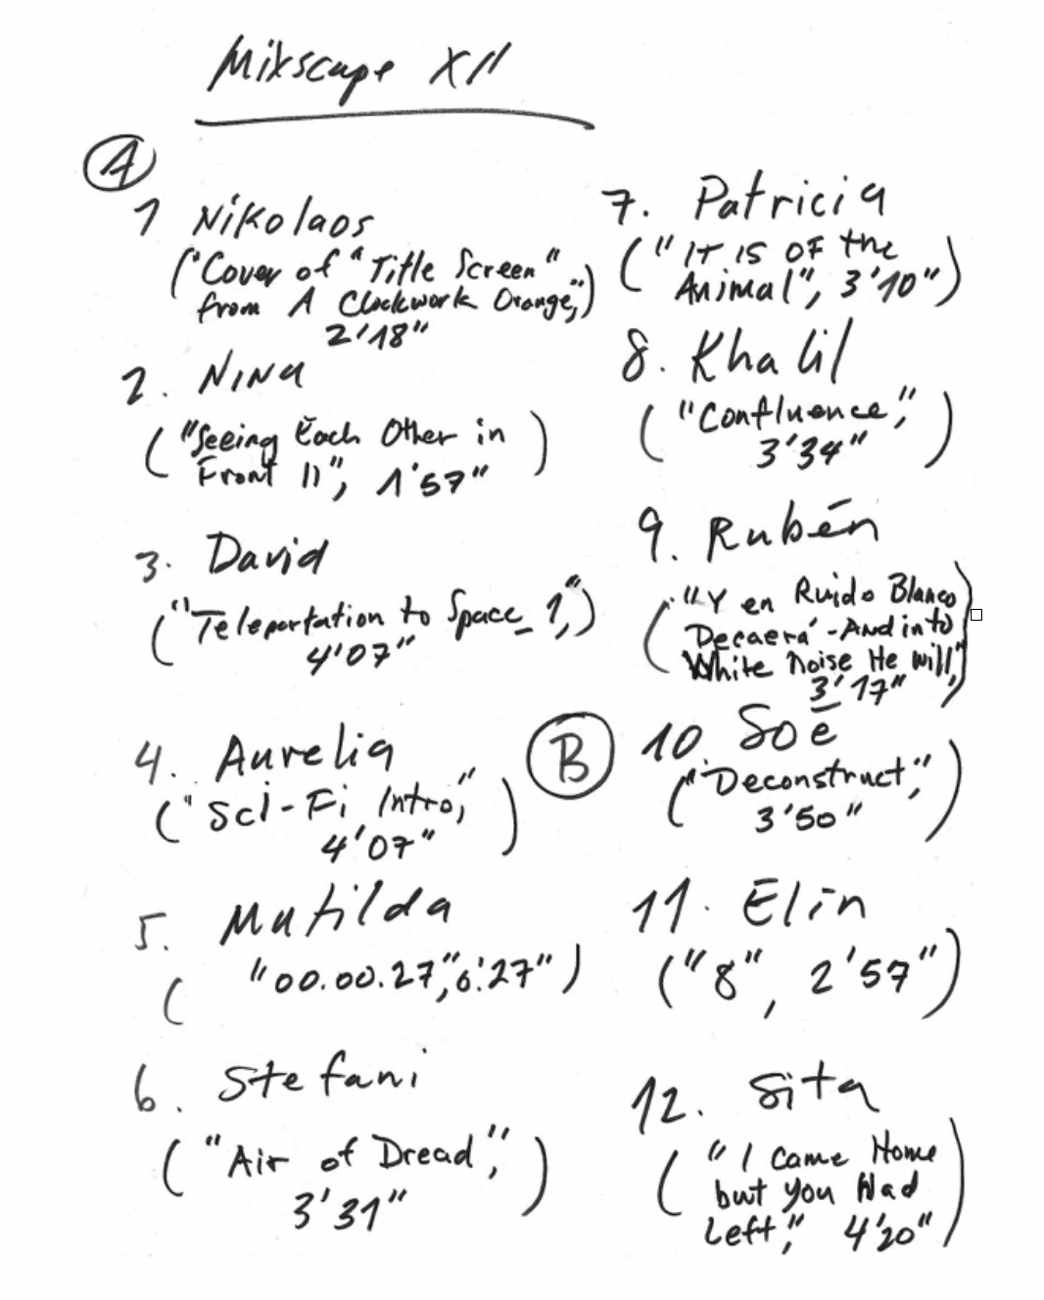 Mixscape XII
A
1 Nikolaos
("Cover of "Title Screen"
from A Clockwork Orange,")
2'18"
2. Nina
("Seeing Each Other in
Front II", 1'57")
3. David
("Teleportation to Space_1,")
4'07"
4. Aurelia
("Sci-Fi Intro,"
4'07")
5. Matilda
("00.00.27", 6:27")
6. Stefani
("Air of Dread",
3'31")
7. Patricia
("IT IS OF the
Animal", 3'10")
8. Khalil
("Confluence",
3'34")
9. Rubén
("Y en Ruido Blanco
Decaerá - And into
White Noise He Will,"
3'17")
B
10 Soë
("Deconstruct",
3'50")
11. Elin
("8", 2'57")
12. Sita
("I Came Home
but you Had
Left," 4'20")